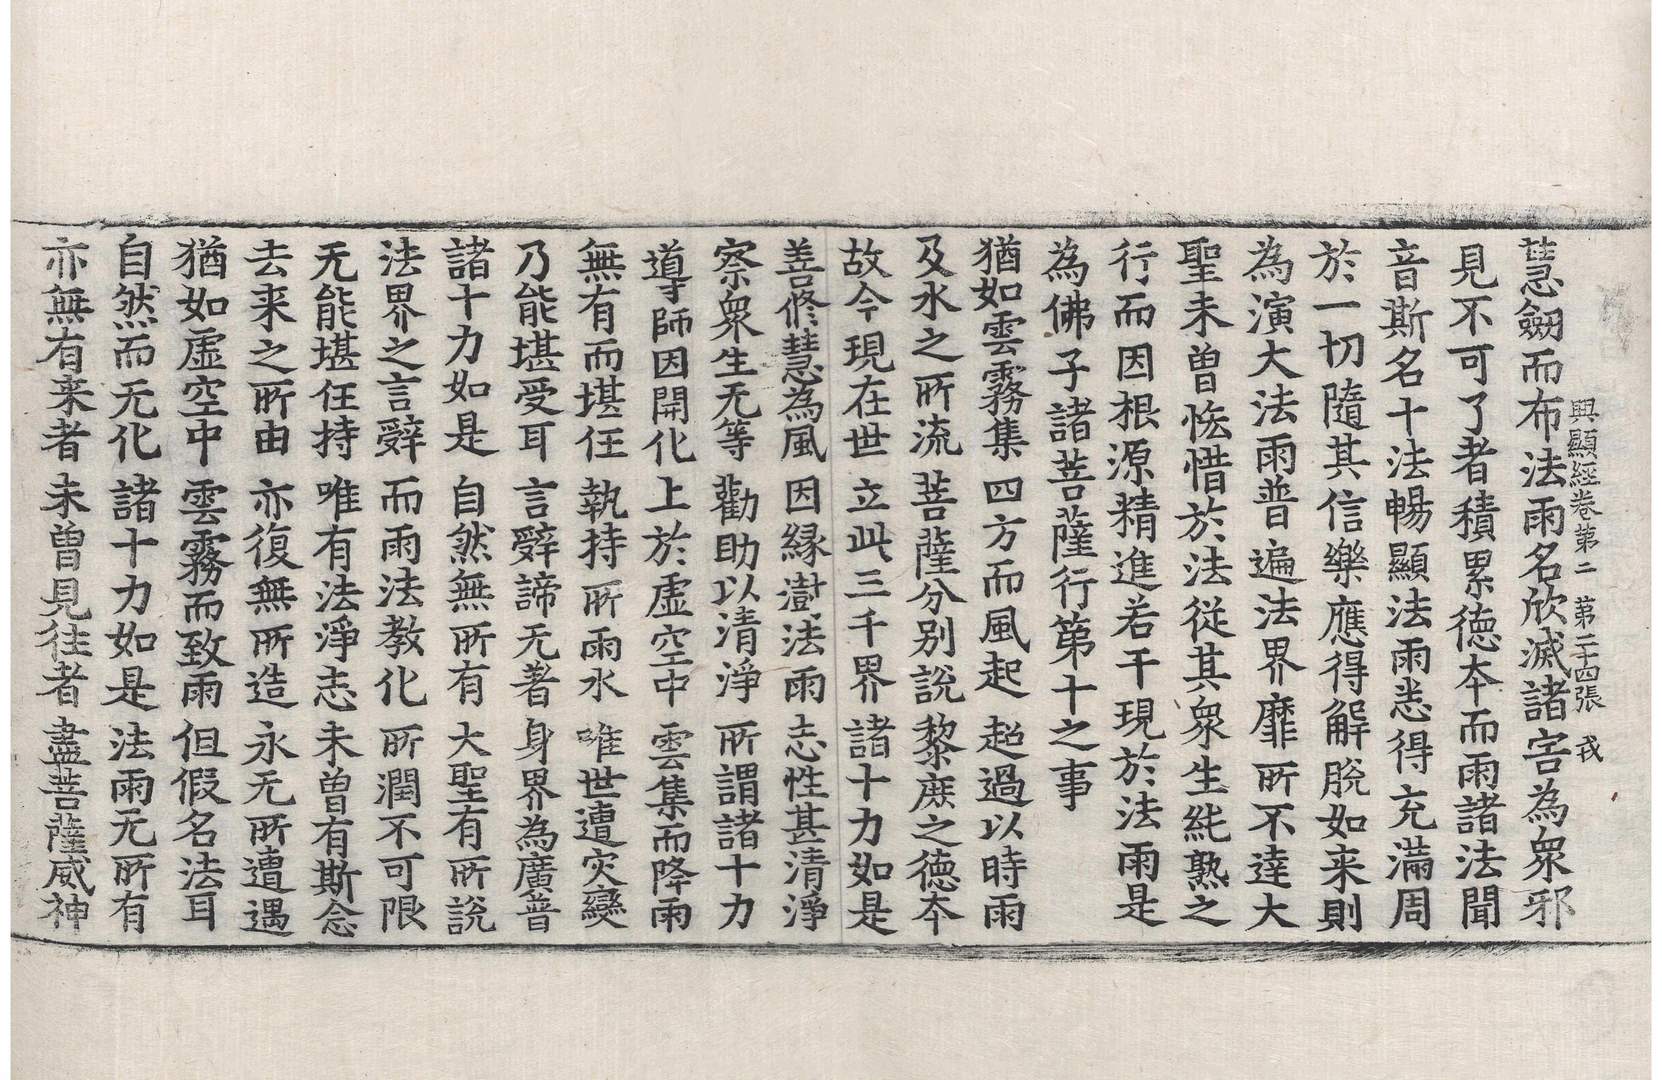 興顯經卷第二　第二十四張　戎
慧劒而布法雨名欣滅諸害為衆邪
見不可了者積累德夲而雨諸法聞
音斯名十法暢顯法雨悉得充滿周
於一切隨其信樂應得解脫如来則
為演大法雨普遍法界靡所不達大
聖未曾恡惜於法從其衆生純熟之
行而因根源精進若干現於法雨是
為佛子諸菩薩行第十之事
猶如雲霧集　四方而風起　超過以時雨
及水之所流　菩薩分別說　黎庶之德夲
故今現在世　立此三千界　諸十力如是
善修慧為風　因縁澍法雨　志性甚清淨
察衆生无等　勸助以清淨　所謂諸十力
導師因開化　上於虛空中　雲集而降雨
無有而堪任　執持所雨水　唯世遭灾變
乃能堪受耳　言辭諦无著　身界為廣普
諸十力如是　自然無所有　大聖有所說
法界之言辭　而雨法教化　所潤不可限
无能堪任持　唯有法淨志　未曾有斯念
去来之所由　亦復無所造　永无所遭遇
猶如虛空中　雲霧而致雨　但假名法耳
自然而无化　諸十力如是　法雨无所有
亦無有来者　未曾見往者　盡菩薩威神